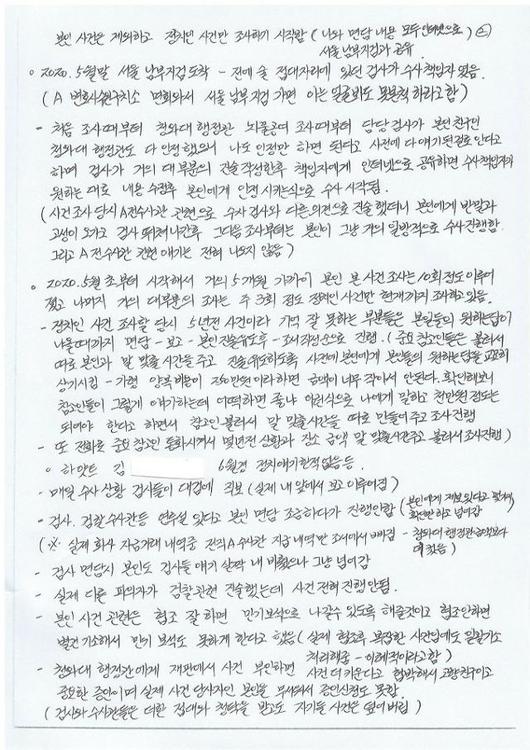 본인 사건은 제외하고 정치인 사건만 조사하기 시작함 (나와 면담 내용 모두 인터넷으로) ②
서울 남부지검과 공유
○ 2020. 5월말 서울 남부지검 도착 - 전에 술 접대자리에 있던 검사가 수사 책임자 였음.
(A 변호사 구치소 면회와서 서울 남부지검 가면 아는 얼굴봐도 못본척 하라고함)
- 처음 조사때부터 청와대 행정관 뇌물공여 조사때부터 담당 검사가 본인 친구인
청와대 행정관도 다 인정했으니 나도 인정만 하면 된다고 사전에 다 얘기된걸로 안다고
하며 검사가 거의 대부분의 진술 작성한후 책임자에게 인터넷으로 공유하면 수사책임자가
원하는 대로 내용 수정후 본인에게 인정시키는식으로 수사 시작됨.
(사건 조사 당시 A전수사관 관련으로 수사 검사와 다른의견으로 진술했더니 본인에게 반말과
고성이 오가고 검사 뛰쳐나간후 그다음 조사부터는 본인이 그냥 거의 일방적으로 수사진행함.
그리고 A전수사관 관련 얘기는 전혀 나오지 않음)
○ 2020. 5월 초부터 시작해서 거의 5개월 가까이 본인 본 사건조사는 10회 정도 이루어
졌고 나머지 거의 대부분의 조사는 주 3회 정도 정치인 사건만 현재까지 조사하고 있음.
- 정치인 사건 조사할 당시 5년전 사건이라 기억 잘 못하는 부분들은 본인들의 원하는답이
나올때까지 면담 - 보고 - 본인진술유도후 - 조서작성순으로 진행. (중요 참고인들은 불러서
따로 본인과 말 맞출시간을 주고 진술유도하도록 사전에 본인에게 본인들의 원하는답을 교묘히
상기시킴 - 가령 양복 비용이 250만원 이라하면 금액이 너무 작아서 안된다. 확인해보니
참고인들이 그렇게 얘기하는데 어떡하면 좋냐 이런식으로 나에게 말하고 천만원 정도는
되어야 한다고 하면서 참고인 불러서 말 맞출시간을 따로 만들어주고 조사 진행
- 또 전화로 중요 참고인 통화시켜서 몇년전 상황과 장소 금액 말 맞출시간주고 불러서 조사진행)
○ 하얏트 김 6월경 정치얘기한적없음 등.
- 매일 수사상황 검사들이 대검에 직보 (실제 내 앞에서 보고 이루어짐)
- 검사. 검찰수사관등 연루설 있다고 본인 면담 조금하다가 진행안함 (본인에게 제보있다고 몇개
확인만 하고 넘어감
(※ 실제 회사 자금거래 내역중 전직 A수사관 지급 내역만 조서에서 빠짐 - 청와대 행정관금액보다
더 컸음)
- 검사 면담시 본인도 검사들 얘기 살짝 내비쳤으나 그냥 넘어감
- 실제 다른 피의자가 검찰관련 진술했는데 사건 전혀 진행안됨.
- 본인 사건 관련은 협조 잘 하면 만기보석으로 나갈수 있도록 해줄것이고 협조안하면
별건 기소해서 만기 보석도 못하게 한다고 했음 (실제 협조후 복잡한 사건임에도 일괄기소
처리해줌 - 이례적이라고함)
- 청와대 행정관에게 재판에서 사건 부인하면 사건 더키운다고 협박해서 고향친구이고
중요한 증인이며 실제 사건 당사자인 본인을 무서워서 증인신청도 못함
(검사와 수사관들은 더한 접대와 청탁을 받고도 자기들 사건은 덮어버림)